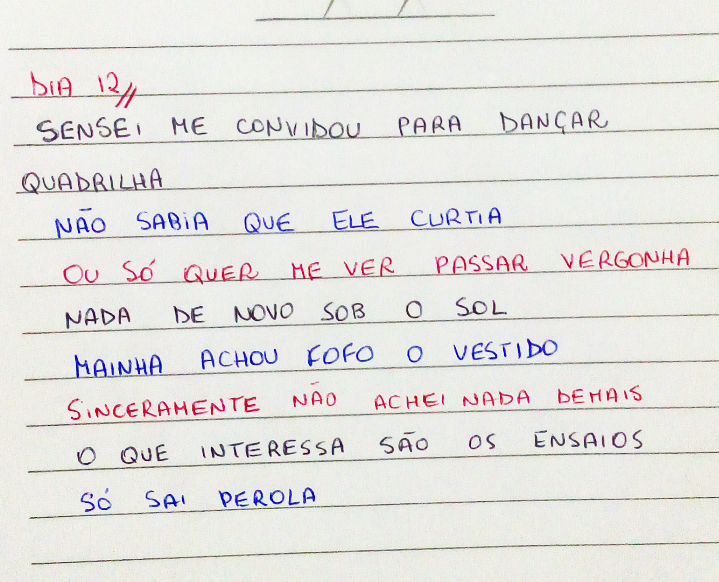 DIA 12//
SENSEI ME CONVIDOU PARA DANÇAR
QUADRILHA
NÃO SABIA QUE ELE CURTIA
OU SÓ QUER ME VER PASSAR VERGONHA
NADA DE NOVO SOB O SOL
MAINHA ACHOU FOFO O VESTIDO
SINCERAMENTE NÃO ACHEI NADA DEMAIS
O QUE INTERESSA SÃO OS ENSAIOS
SÓ SAI PEROLA